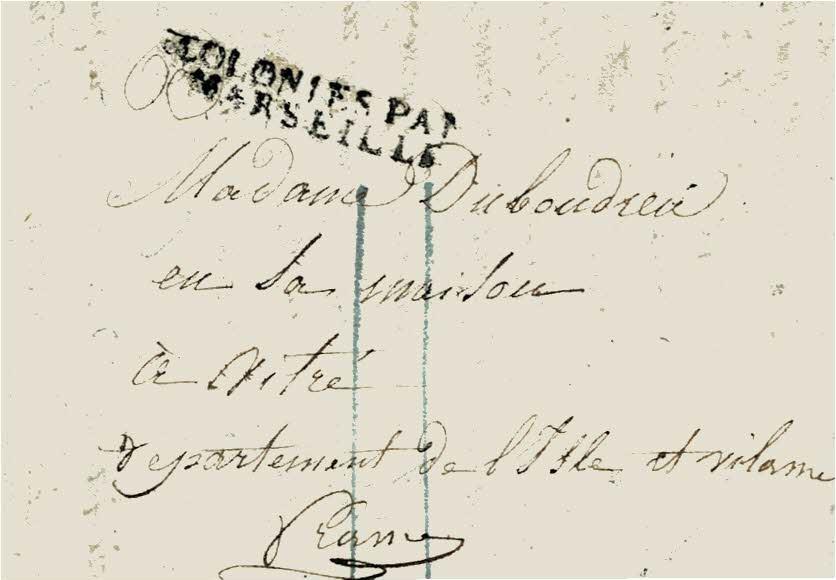 COLONIES PAR
MARSEILLE
Madame Duboudrei
en sa maison
à vitré
departement de l'Isle et vilame
france